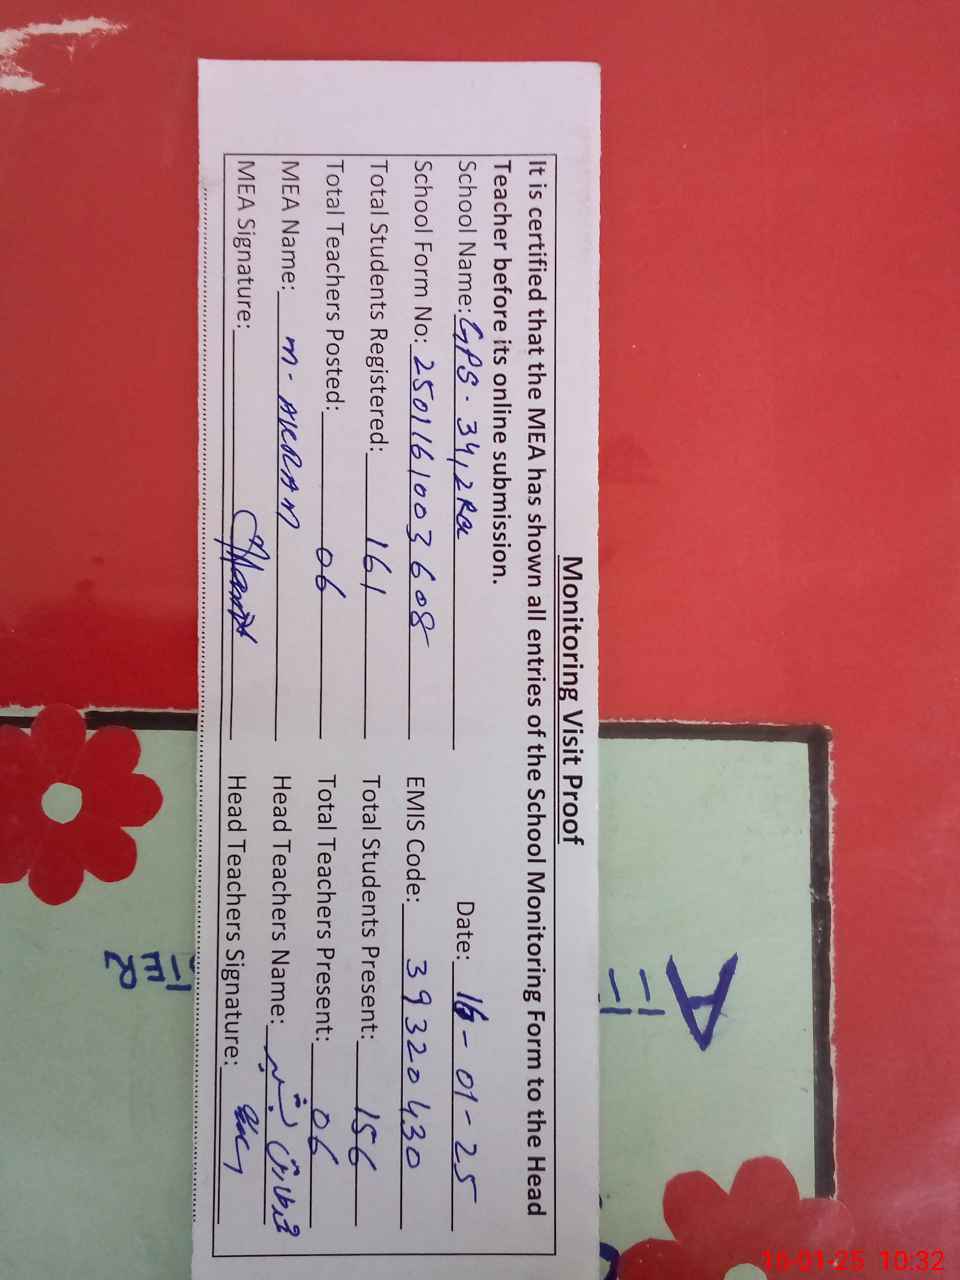 Monitoring Visit Proof
It is certified that the MEA has shown all entries of the School Monitoring Form to the Head
Teacher before its online submission.
School Name: GPS. 34, 2RA Date: 16-01-25
School Form No: 2501161003608 EMIS Code: 39320430
Total Students Registered: 161 Total Students Present: 156
Total Teachers Posted: 06 Total Teachers Present: 06
MEA Name: M. AKRAM Head Teachers Name:
MEA Signature: Head Teachers Signature:
A
16-01-25 10:32